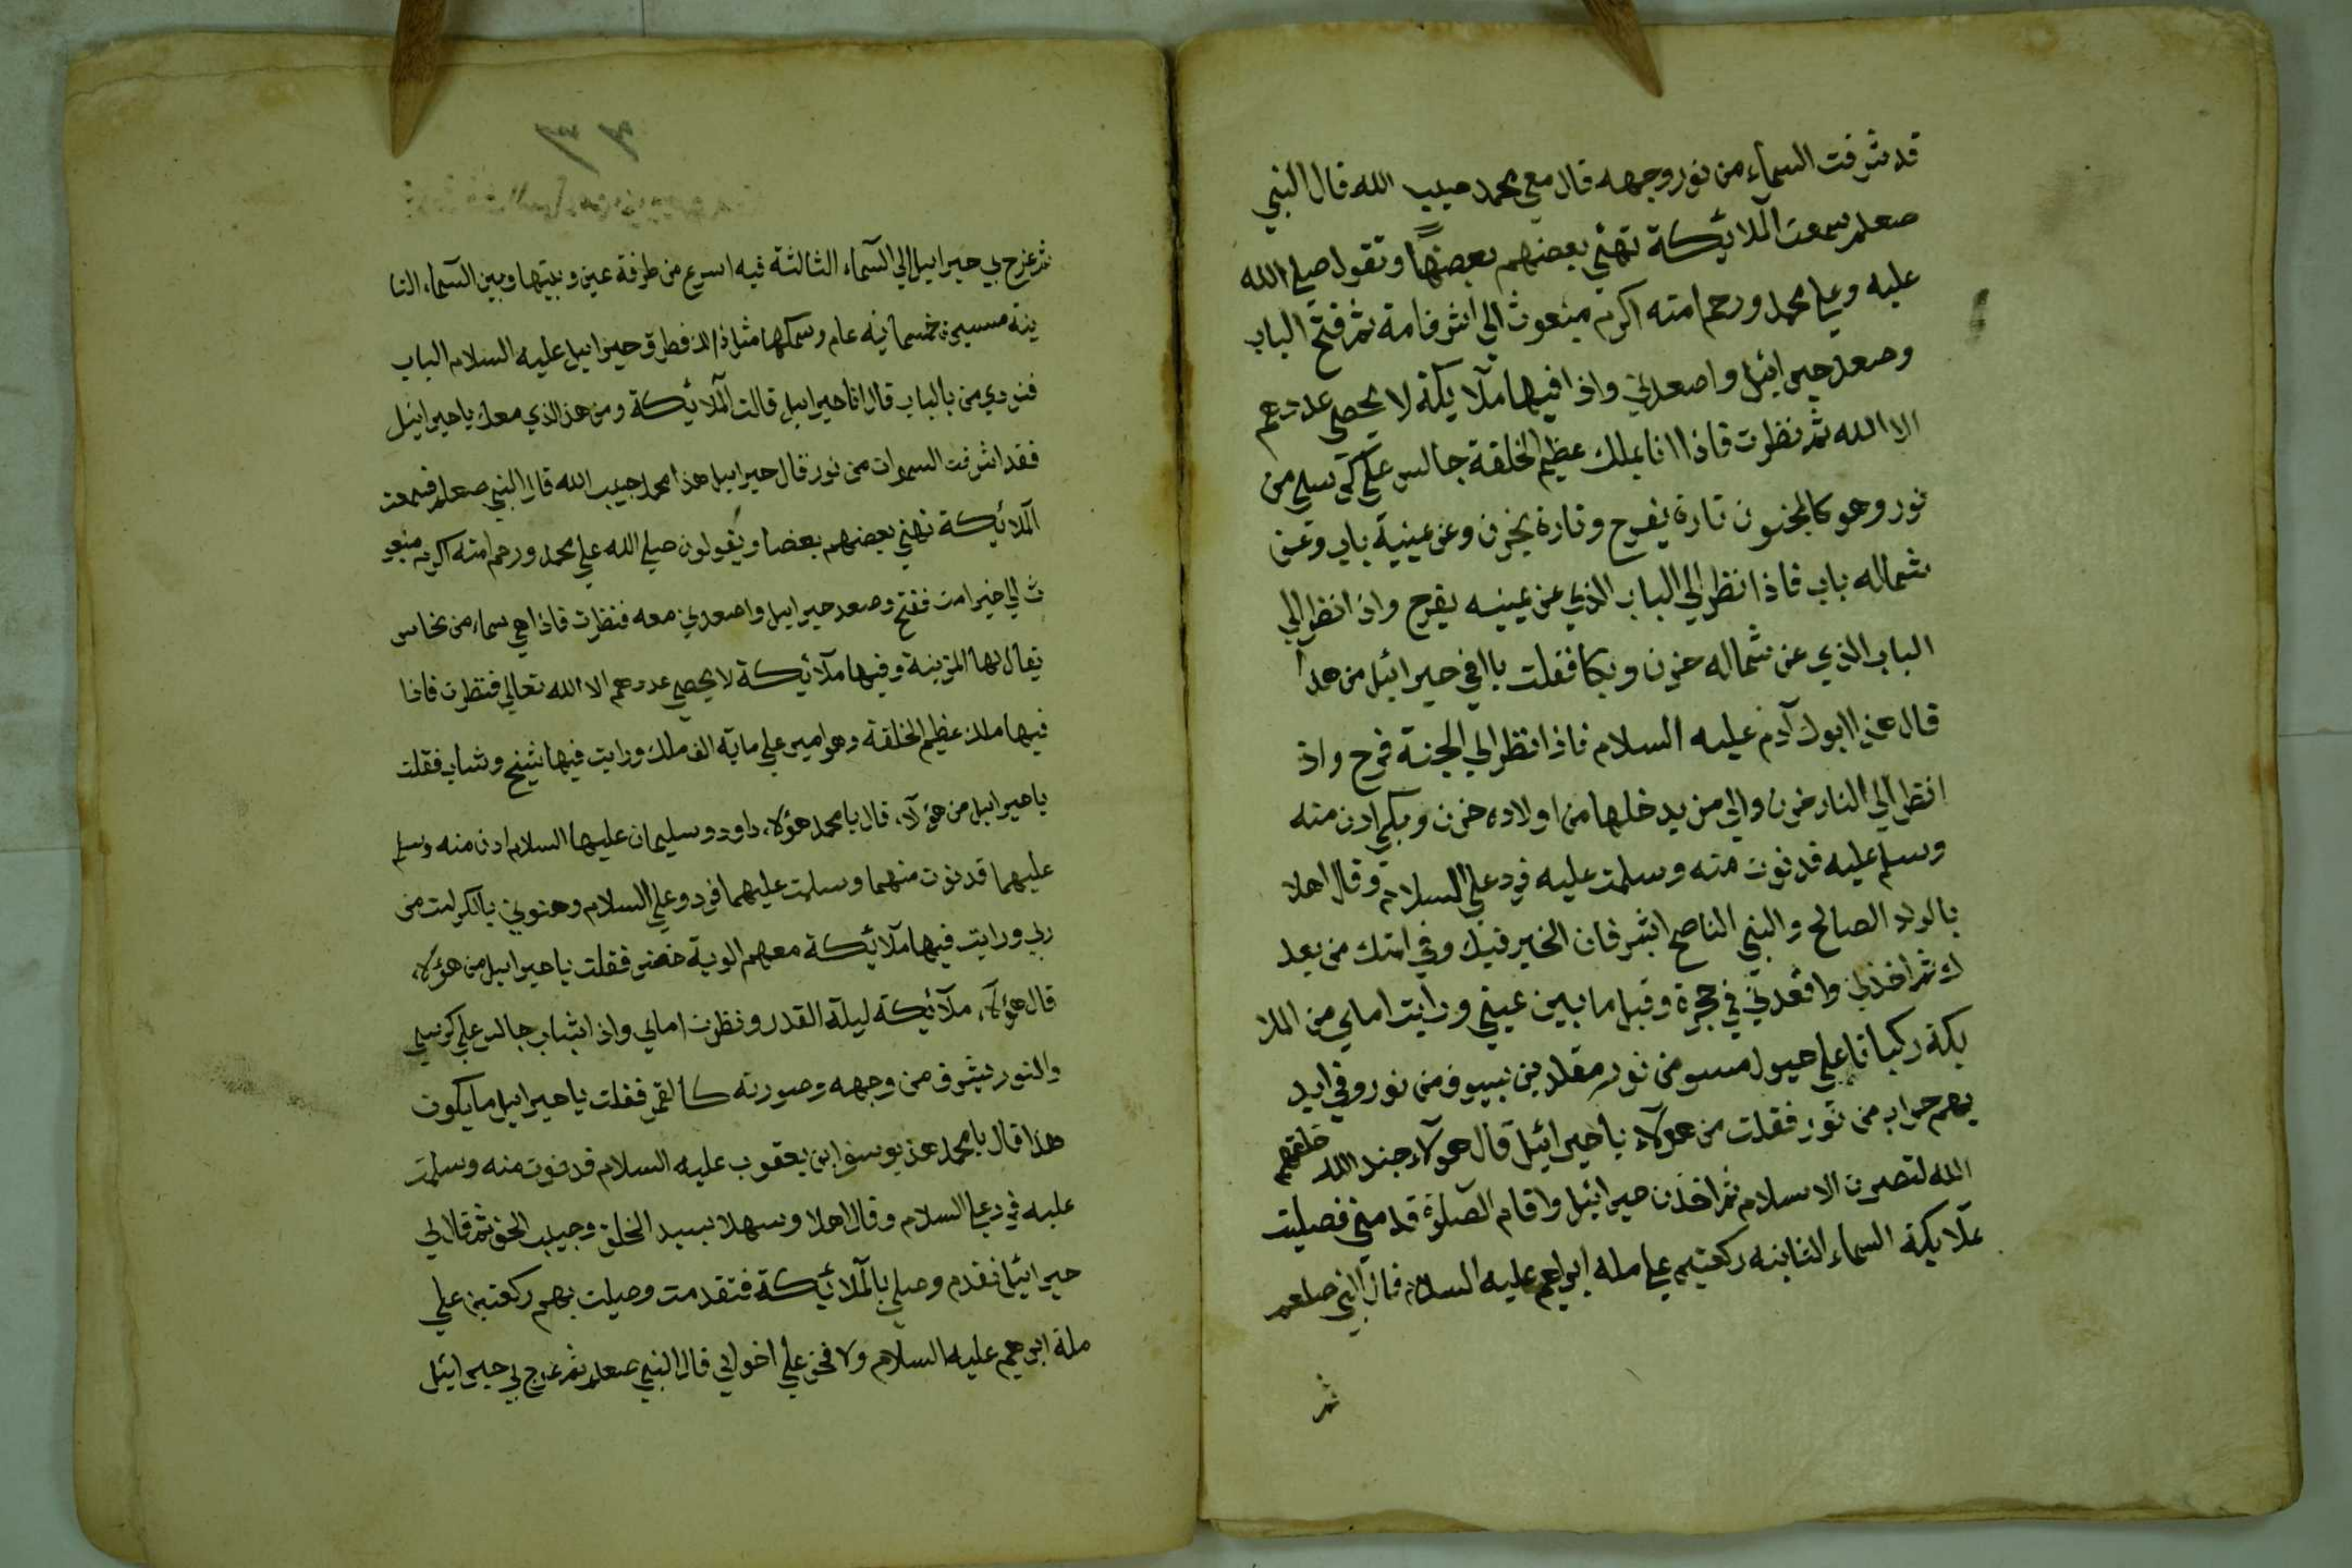 قد شرفت السماء من نور وجهه قال معي محمد حبيب الله قال النبي
صعلم سمعت الملايكة تهني بعضهم بعضها وتقول صلي الله
عليه وعلي محمد ورحم امته اكرم مبعوث الي اشرف امة ثم فتح الباب
وصعد جبرائيل واصعدني واذا فيها ملايكة لا يحصي عددهم
الا الله ثم نظرت فاذا انا بملك عظيم الخلقة جالس علي كرسي من
نور وهو كالمجنون تارة يفرح وتارة يحزن وعن يمينه باب وعن
شماله باب فاذا نظر الي الباب الذي عن يمينه يفرح واذا نظر الي
الباب الذي عن شماله حزن وبكا فقلت يا اخي جبرائيل من هذا
قال هذا ابوك آدم عليه السلام فاذا نظر الي الجنة فرح واذ
انظر الي النار حزن والي من يدخلها من اولاده حزن وبكي ادن منه
وسلم عليه فدنوت منه وسلمت عليه فرد علي السلام وقال اهلا
بالولد الصالح والنبي الناصح ابشر فان الخير فيك وفي امتك من بعد
ك ثم اخذني واقعدني في حجرة وقبل ما بين عيني ورايت امامي من الملا
يكة ركبانا علي خيول مسومن نور مقلدين بسيوف من نور وفي ايد
يهم حراب من نور فقلت من هولاء يا جبرائيل قال هولاء جند الله خلقهم
الله لنصرت الاسلام ثم اخذن جبرائيل واقام الصلوة قدمني فصليت
بملايكة السماء الثانيه ركعتين علي ملة ابراهيم عليه السلام قال النبي صلعم
ثم
ثم عرج بي جبراييل الي السماء الثالثة فيه اسرع من طرفة عين وبينها وبين السماء الثا
ينة مسيرة خمسماية عام وسمكها مثل ذالك فطرق جبراييل عليه السلام الباب
فنودي من بالباب قال انا جبراييل قالت الملايكة ومن هذ الذي معك يا جبرائيل
فقد اشرفت السموات من نور قال جبراييل هذا محمد حبيب الله قال النبي صعلم فسمعت
الملائكة تهني بعضهم بعضا ويقولون صلي الله علي محمد ورحم امته اكرم مبعو
ث الي خير امت ففتح وصعد جبراييل واصعدني معه فنظرت فاذا هي سماء من نحاس
يقال لها المزينة وفيها ملائيكة لا يحصي عددهم الا الله تعالي فنظرت فاذا
فيها ملك عظيم الخلقة وهو امير علي ماية الف ملك ورايت فيها شيخ وشاب فقلت
يا جبراييل من هؤلاء قال يا محمد هؤلاء داود وسليمان عليهما السلام ادن منه وسلم
عليهما فدنوت منهما وسلمت عليهما فردو علي السلام وهنوني بالكرامت من
ربي ورايت فيها ملائيكة معهم الوية خضر فقلت يا جبراييل من هؤلاء
قال هؤلاء ملائيكة ليلة القدر ونظرت امامي واذا بشاب جالس علي كرسي
والنور يشرق من وجهه وصورته كالقمر فقلت يا جبراييل ما يكون
هذا قال يا محمد هذ يوسف ابن يعقوب عليه السلام فدنوت منه وسلمت
عليه فرد علي السلام وقال اهلا وسهلا بسيد الخلق وحبيب الحق ثم قال لي
جبرائيل تقدم وصلي بالملائيكة فتقدمت وصليت بهم ركعتين علي
ملة ابرهيم عليه السلام ولا فخر علي اخواني قال النبي صعلم ثم عرج بي جبرائيل